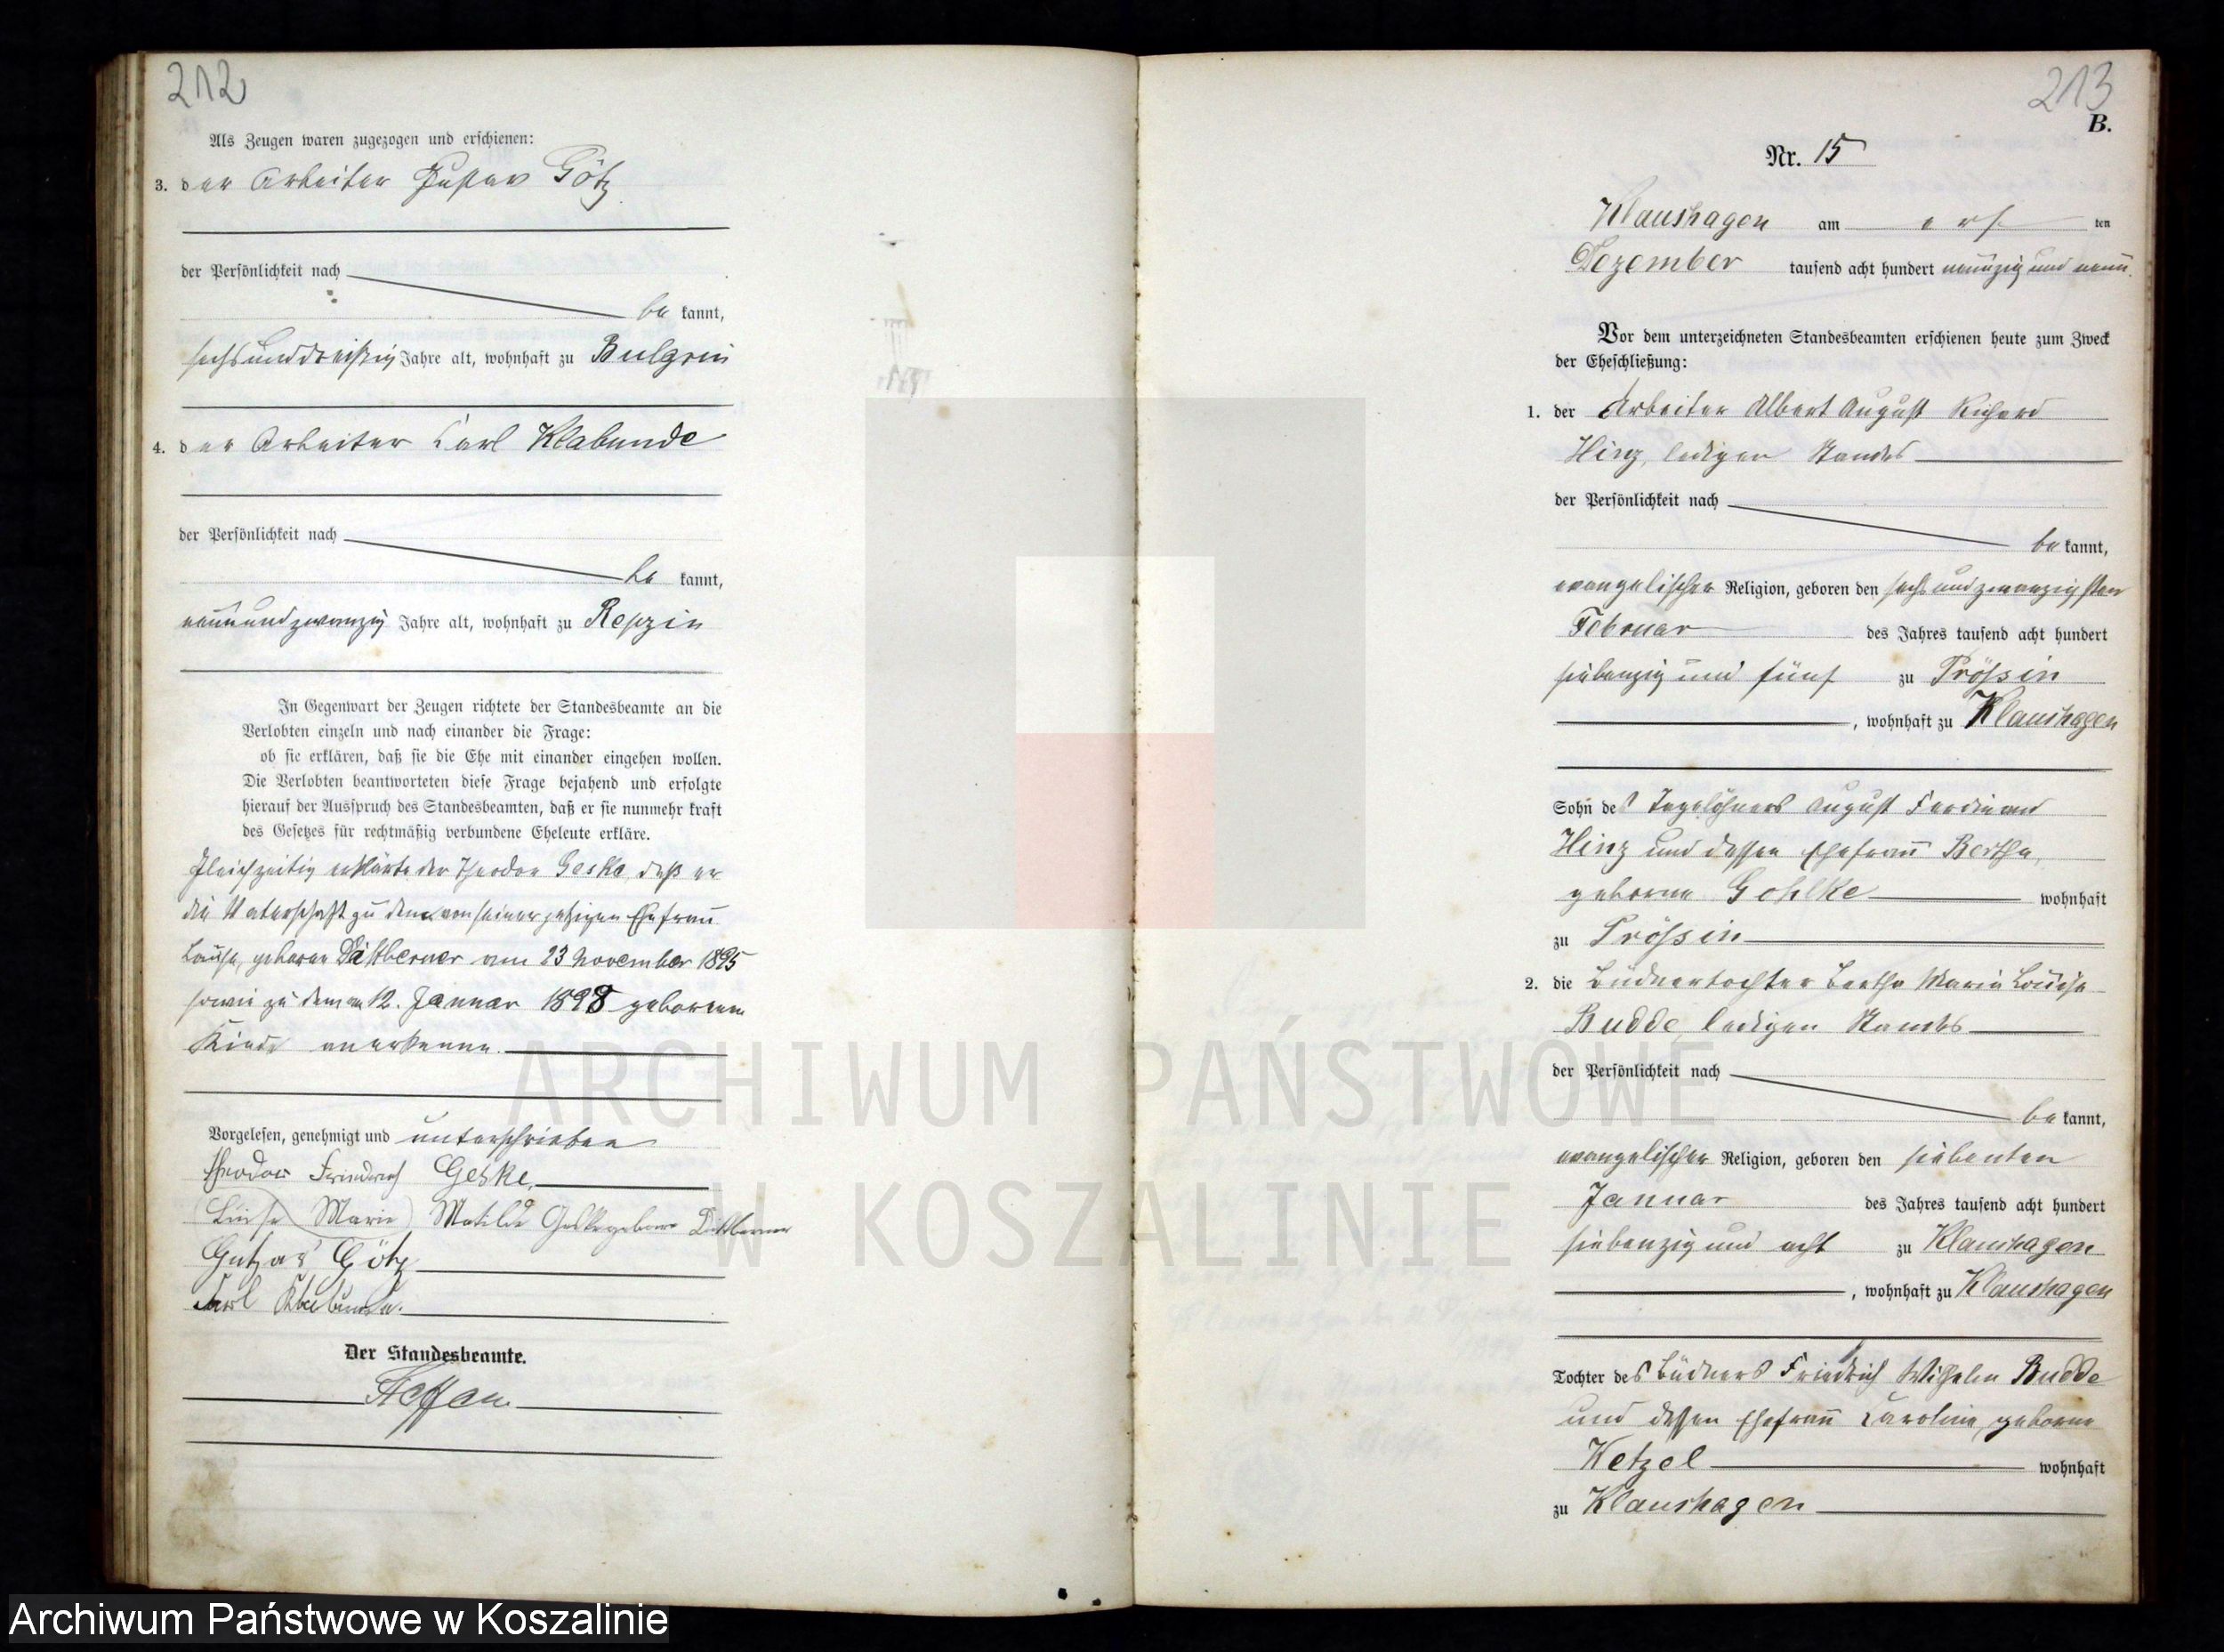 212
Als Zeugen waren zugezogen und erschienen:
3. der Arbeiter Gustav Götz
der Persönlichkeit nach
be kannt,
sechsunddreißig Jahre alt, wohnhaft zu Bulgrin
4. der Arbeiter Carl Klabunde
der Persönlichkeit nach
be kannt,
neunundzwanzig Jahre alt, wohnhaft zu Repzin
In Gegenwart der Zeugen richtete der Standesbeamte an die
Verlobten einzeln und nach einander die Frage:
ob sie erklären, daß sie die Ehe mit einander eingehen wollen.
Die Verlobten beantworteten diese Frage bejahend und erfolgte
hierauf der Ausspruch des Standesbeamten, daß er sie nunmehr kraft
des Gesetzes für rechtmäßig verbundene Eheleute erkläre.
Gleichzeitig erklärte der Theodor Geske, daß er
die Vaterschaft zu dem von seiner jetzigen Ehefrau
Louise, geborene Dittberner am 23 November 1895
sowie zu dem am 12. Januar 1898 geborenen
Kinde anerkenne.
Vorgelesen, genehmigt und unterschrieben
Theodor Friedrich Geske.
Luise Marie Matilde Geske geborne Dittberner
Gustav Götz
Karl Klabunde.
Der Standesbeamte.
Steffen
213
B.
Nr. 15
Klaushagen am ersten
Dezember tausend acht hundert neunzig und neun.
Vor dem unterzeichneten Standesbeamten erschienen heute zum Zweck
der Eheschließung:
1. der Arbeiter Albert August Richard
Hinz, ledigen Standes
der Persönlichkeit nach
be kannt,
evangelischer Religion, geboren den sechsundzwanzigsten
Februar des Jahres tausend acht hundert
siebenzig und fünf zu Prössin
, wohnhaft zu Klaushagen
Sohn des Tagelöhners August Ferdinand
Hinz und dessen Ehefrau Bertha,
geborne Gohlke wohnhaft
zu Prössin
2. die Büdnertochter Bertha Marie Louise
Budde, ledigen Standes
der Persönlichkeit nach
be kannt,
evangelischer Religion, geboren den siebenten
Januar des Jahres tausend acht hundert
siebenzig und acht zu Klaushagen
, wohnhaft zu Klaushagen
Tochter des Büdners Friedrich Wilhelm Budde
und dessen Ehefrau Caroline, geborne
Ketzel wohnhaft
zu Klaushagen
ARCHIWUM PAŃSTWOWE
W KOSZALINIE
Archiwum Państwowe w Koszalinie